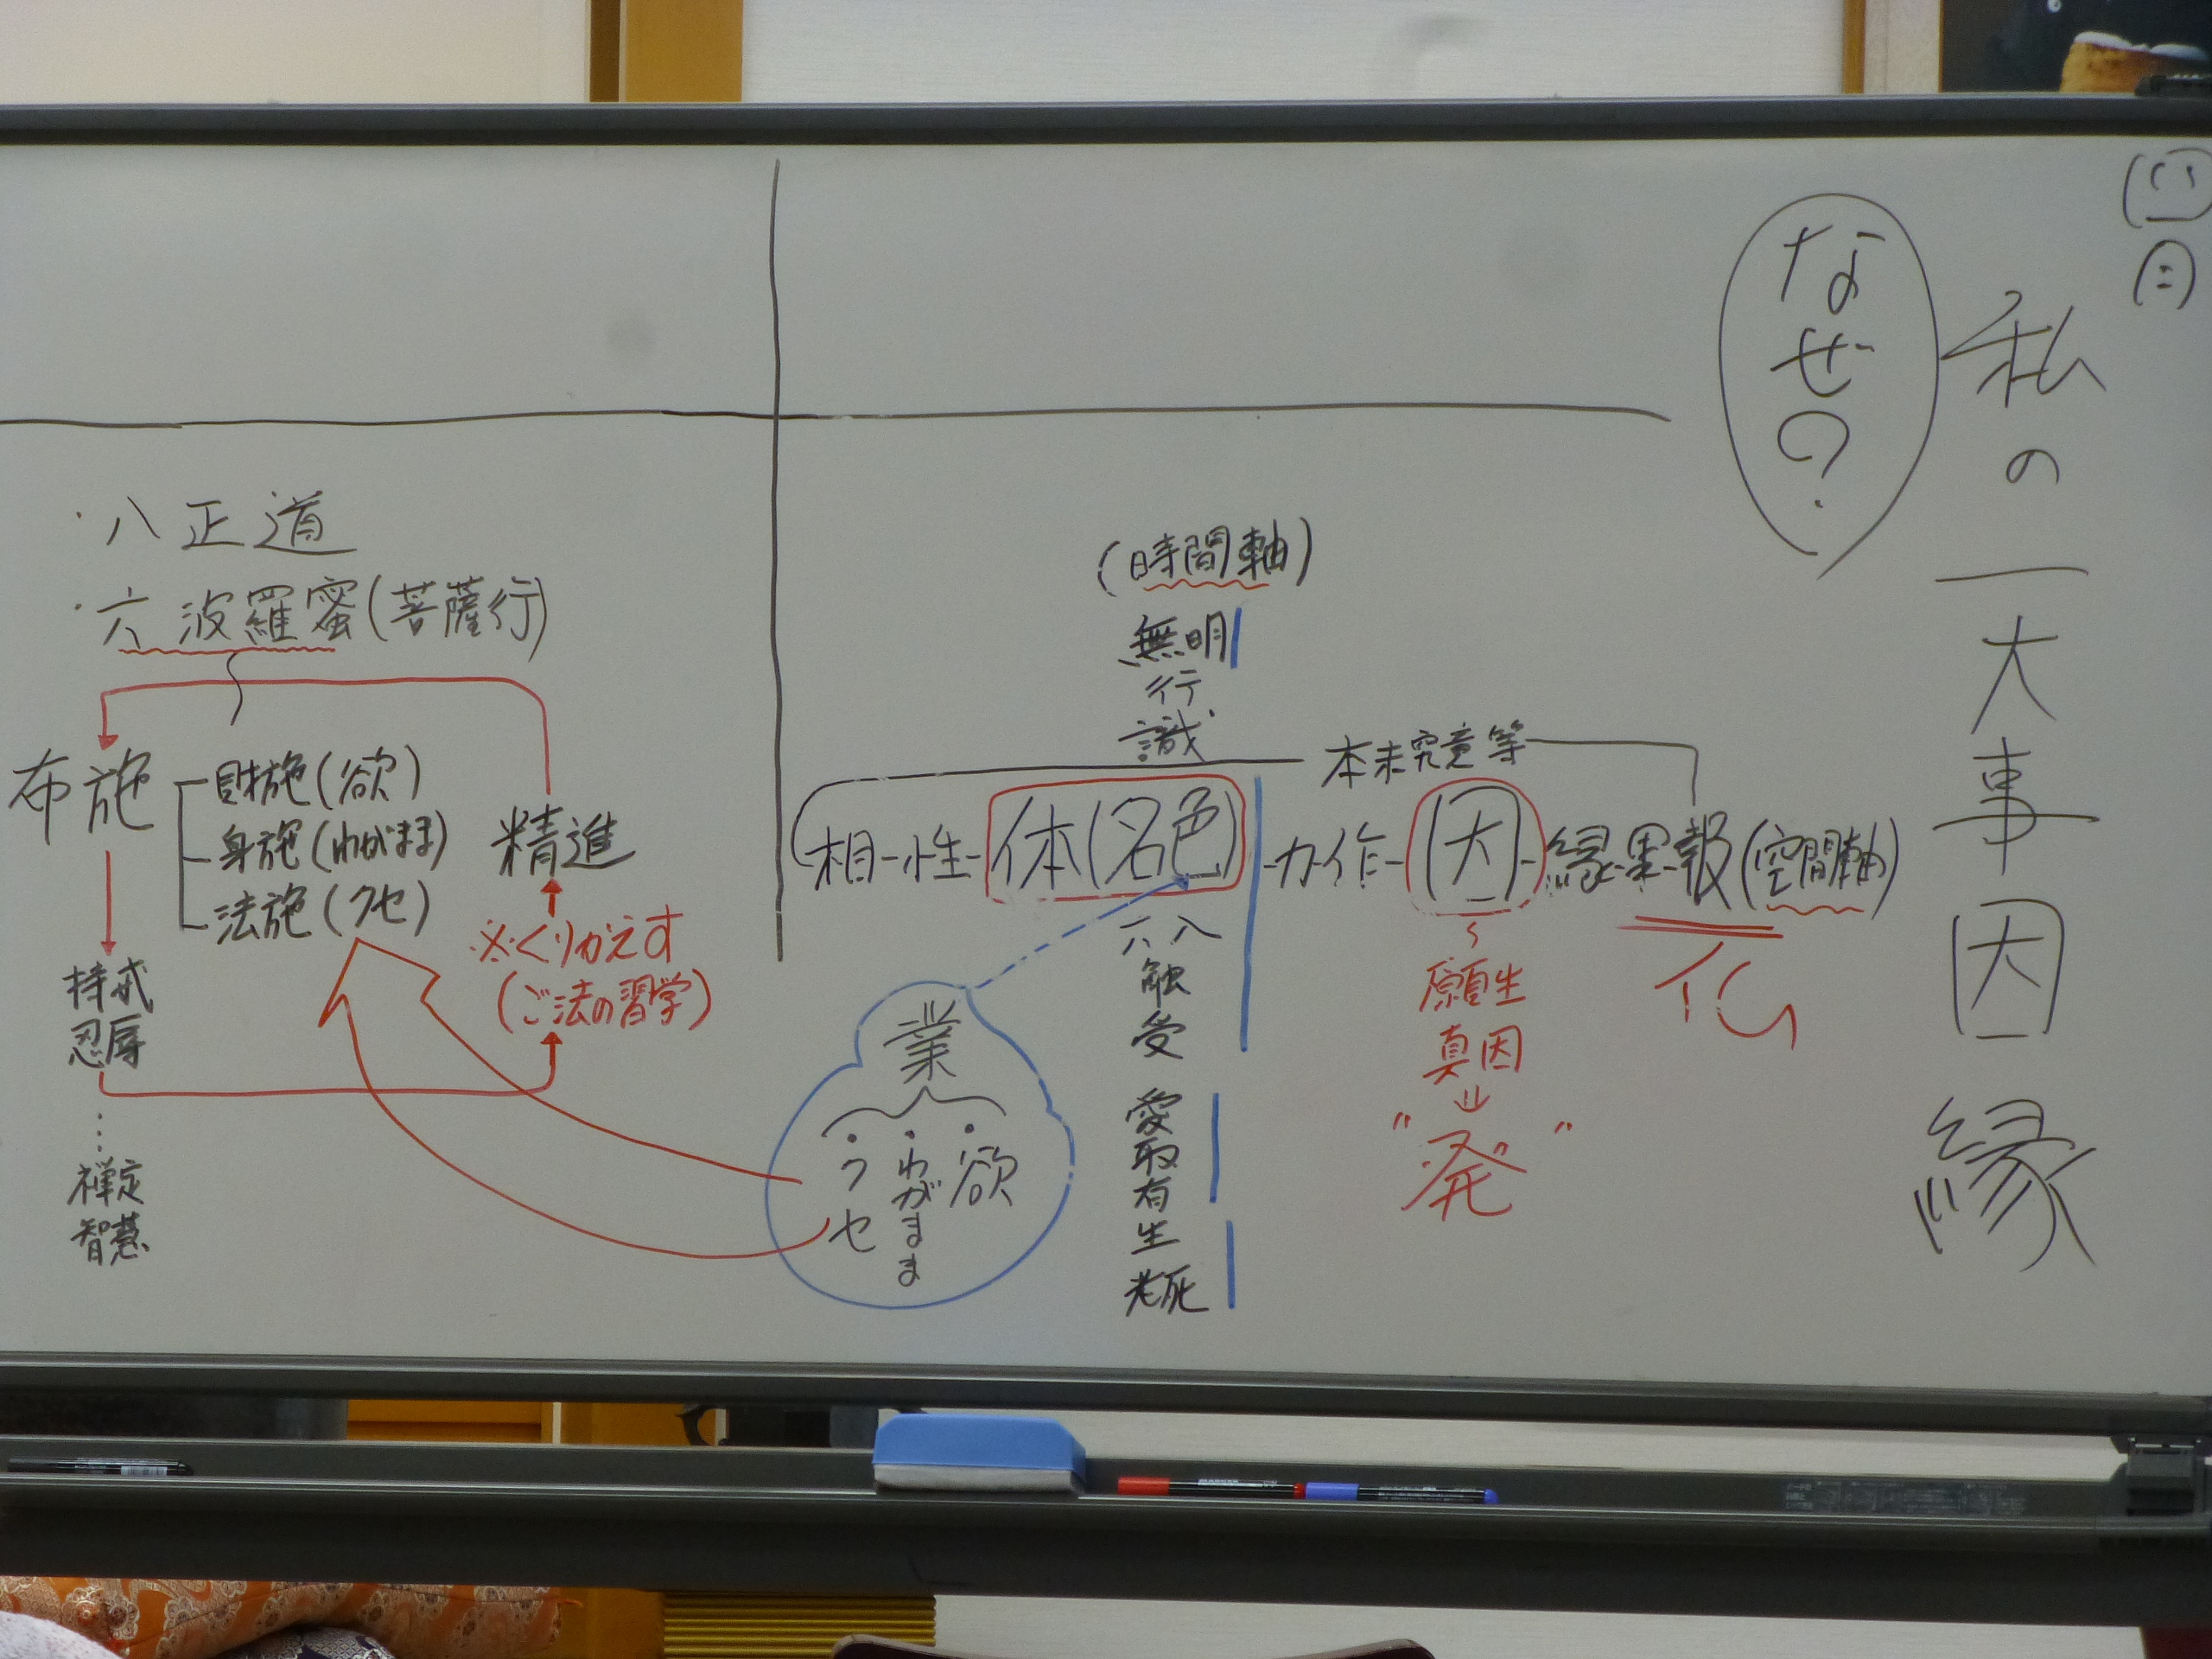 私の一大事因縁
なぜ?
(時間軸)
無明
行
識
本末究竟等
相-性-体(名色)-力-作-(因)-縁-果-報(空間軸)
六入
触
受
愛
取
有
生
老死
願生
真因
⇓
"発"
仏
業
・欲
・わがまま
・クセ
・八正道
・六波羅蜜(菩薩行)
布施
財施(欲)
身施(わがまま)
法施(クセ)
精進
※くりかえす
(ご法の習学)
持戒
忍辱
⋮
禅定
智慧